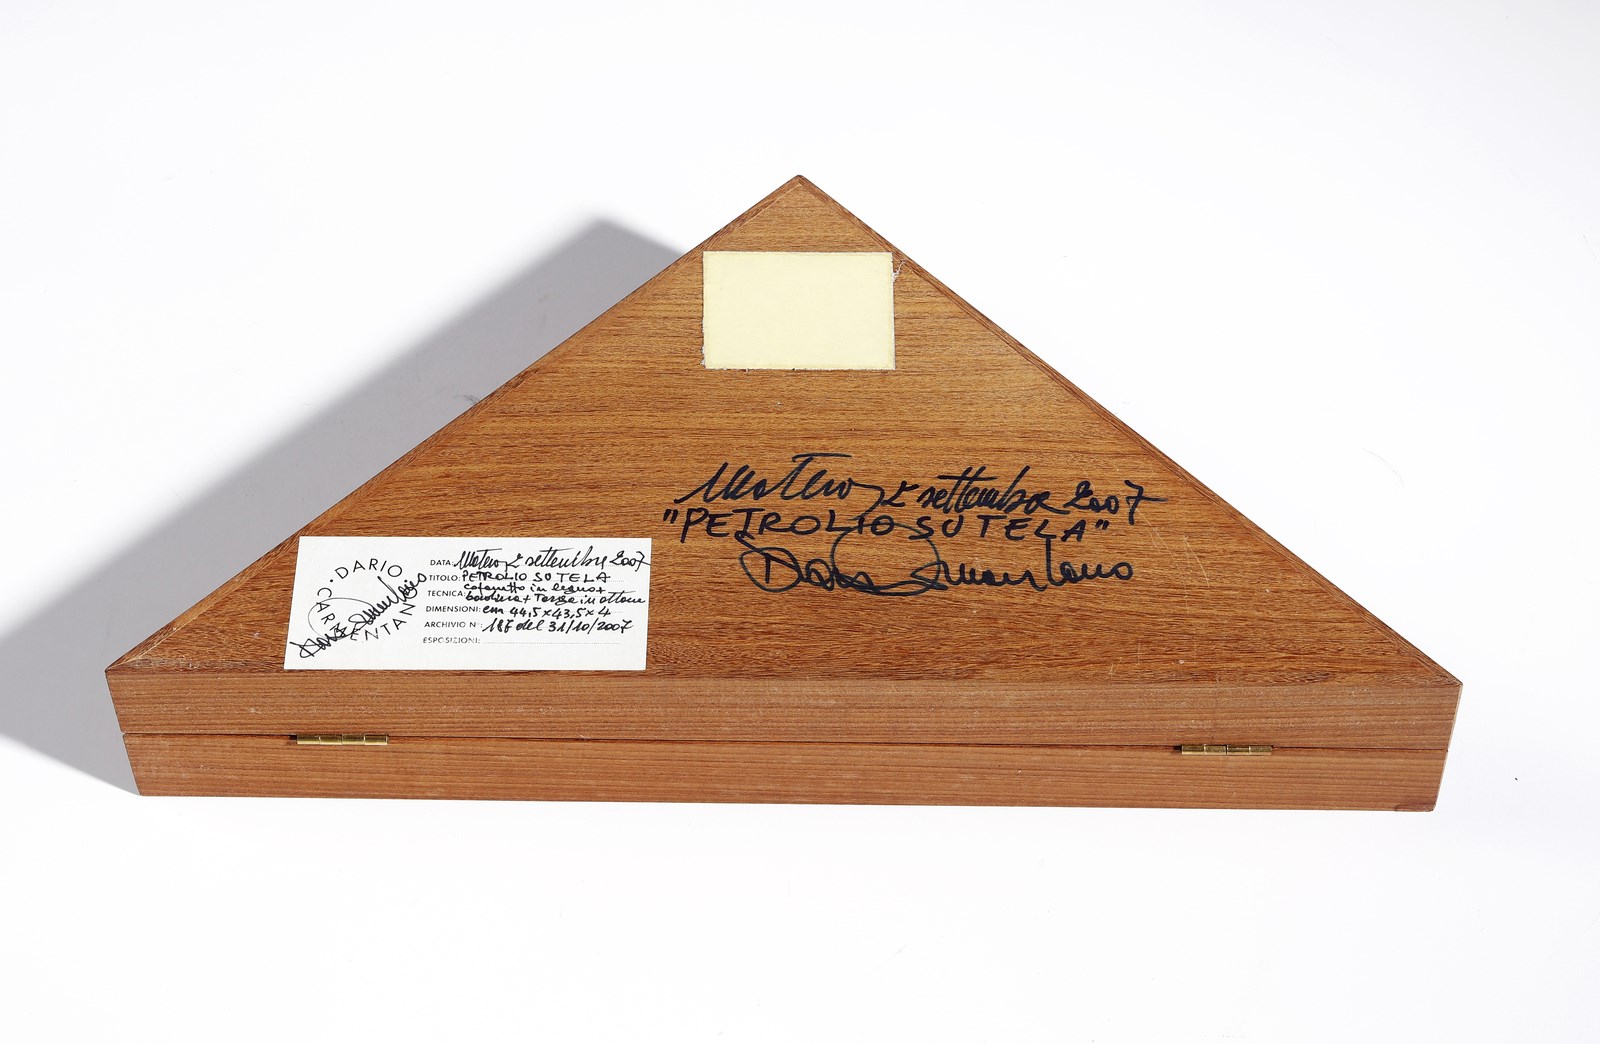 Matera, 2 settembre 2007
"PETROLIO SU TELA"
Dario Carmentano
· DARIO ·
CARMENTANO
DATA: Matera, 2 settembre 2007
TITOLO: PETROLIO SU TELA
TECNICA: cofanetto in legno +
bandiera + Targa in ottone
DIMENSIONI: cm 44,5x43,5x4
ARCHIVIO N°: 187 del 31/10/2007
ESPOSIZIONI: